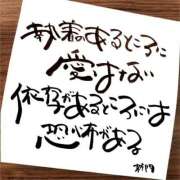 執着あるところに
愛はない
依存があるところには
恐怖がある